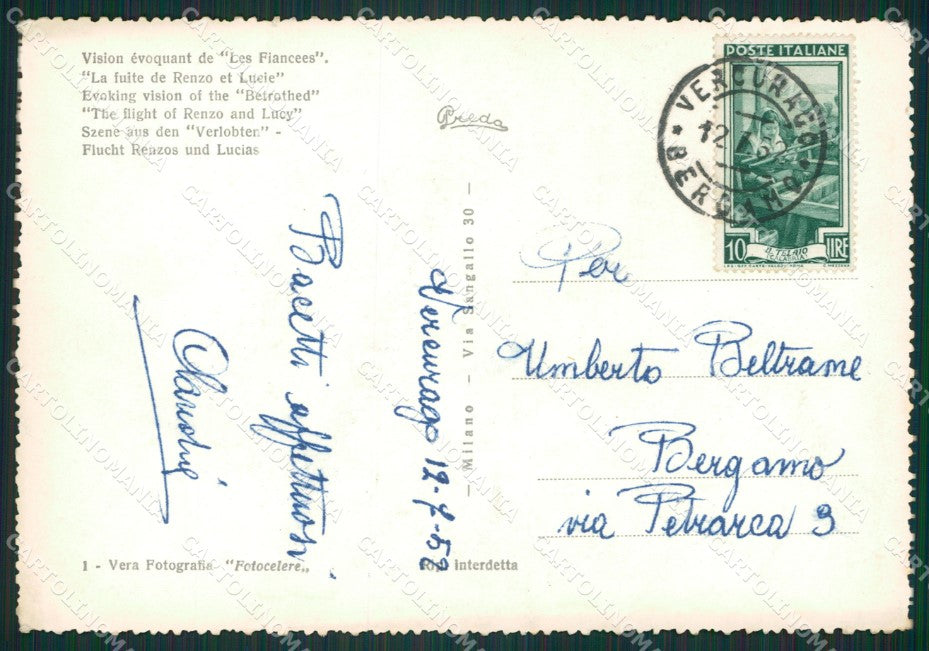 Vision évoquant de "Les Fiancees".
"La fuite de Renzo et Lucie"
Evoking vision of the "Betrothed"
"The flight of Renzo and Lucy"
Szene aus den "Verlobten" -
Flucht Renzos und Lucias
Preda
POSTE ITALIANE
10 LIRE
VERCURAGO
BERGAMO
Bacetti affettuosi
Vercurago 12-7-52
- Milano - Via Sangallo 30 -
Per
Umberto Beltrame
Bergamo
via Petrarca 3
1 - Vera Fotografia "Fotocelere„
Rip. interdetta
CARTOLINOMANIA